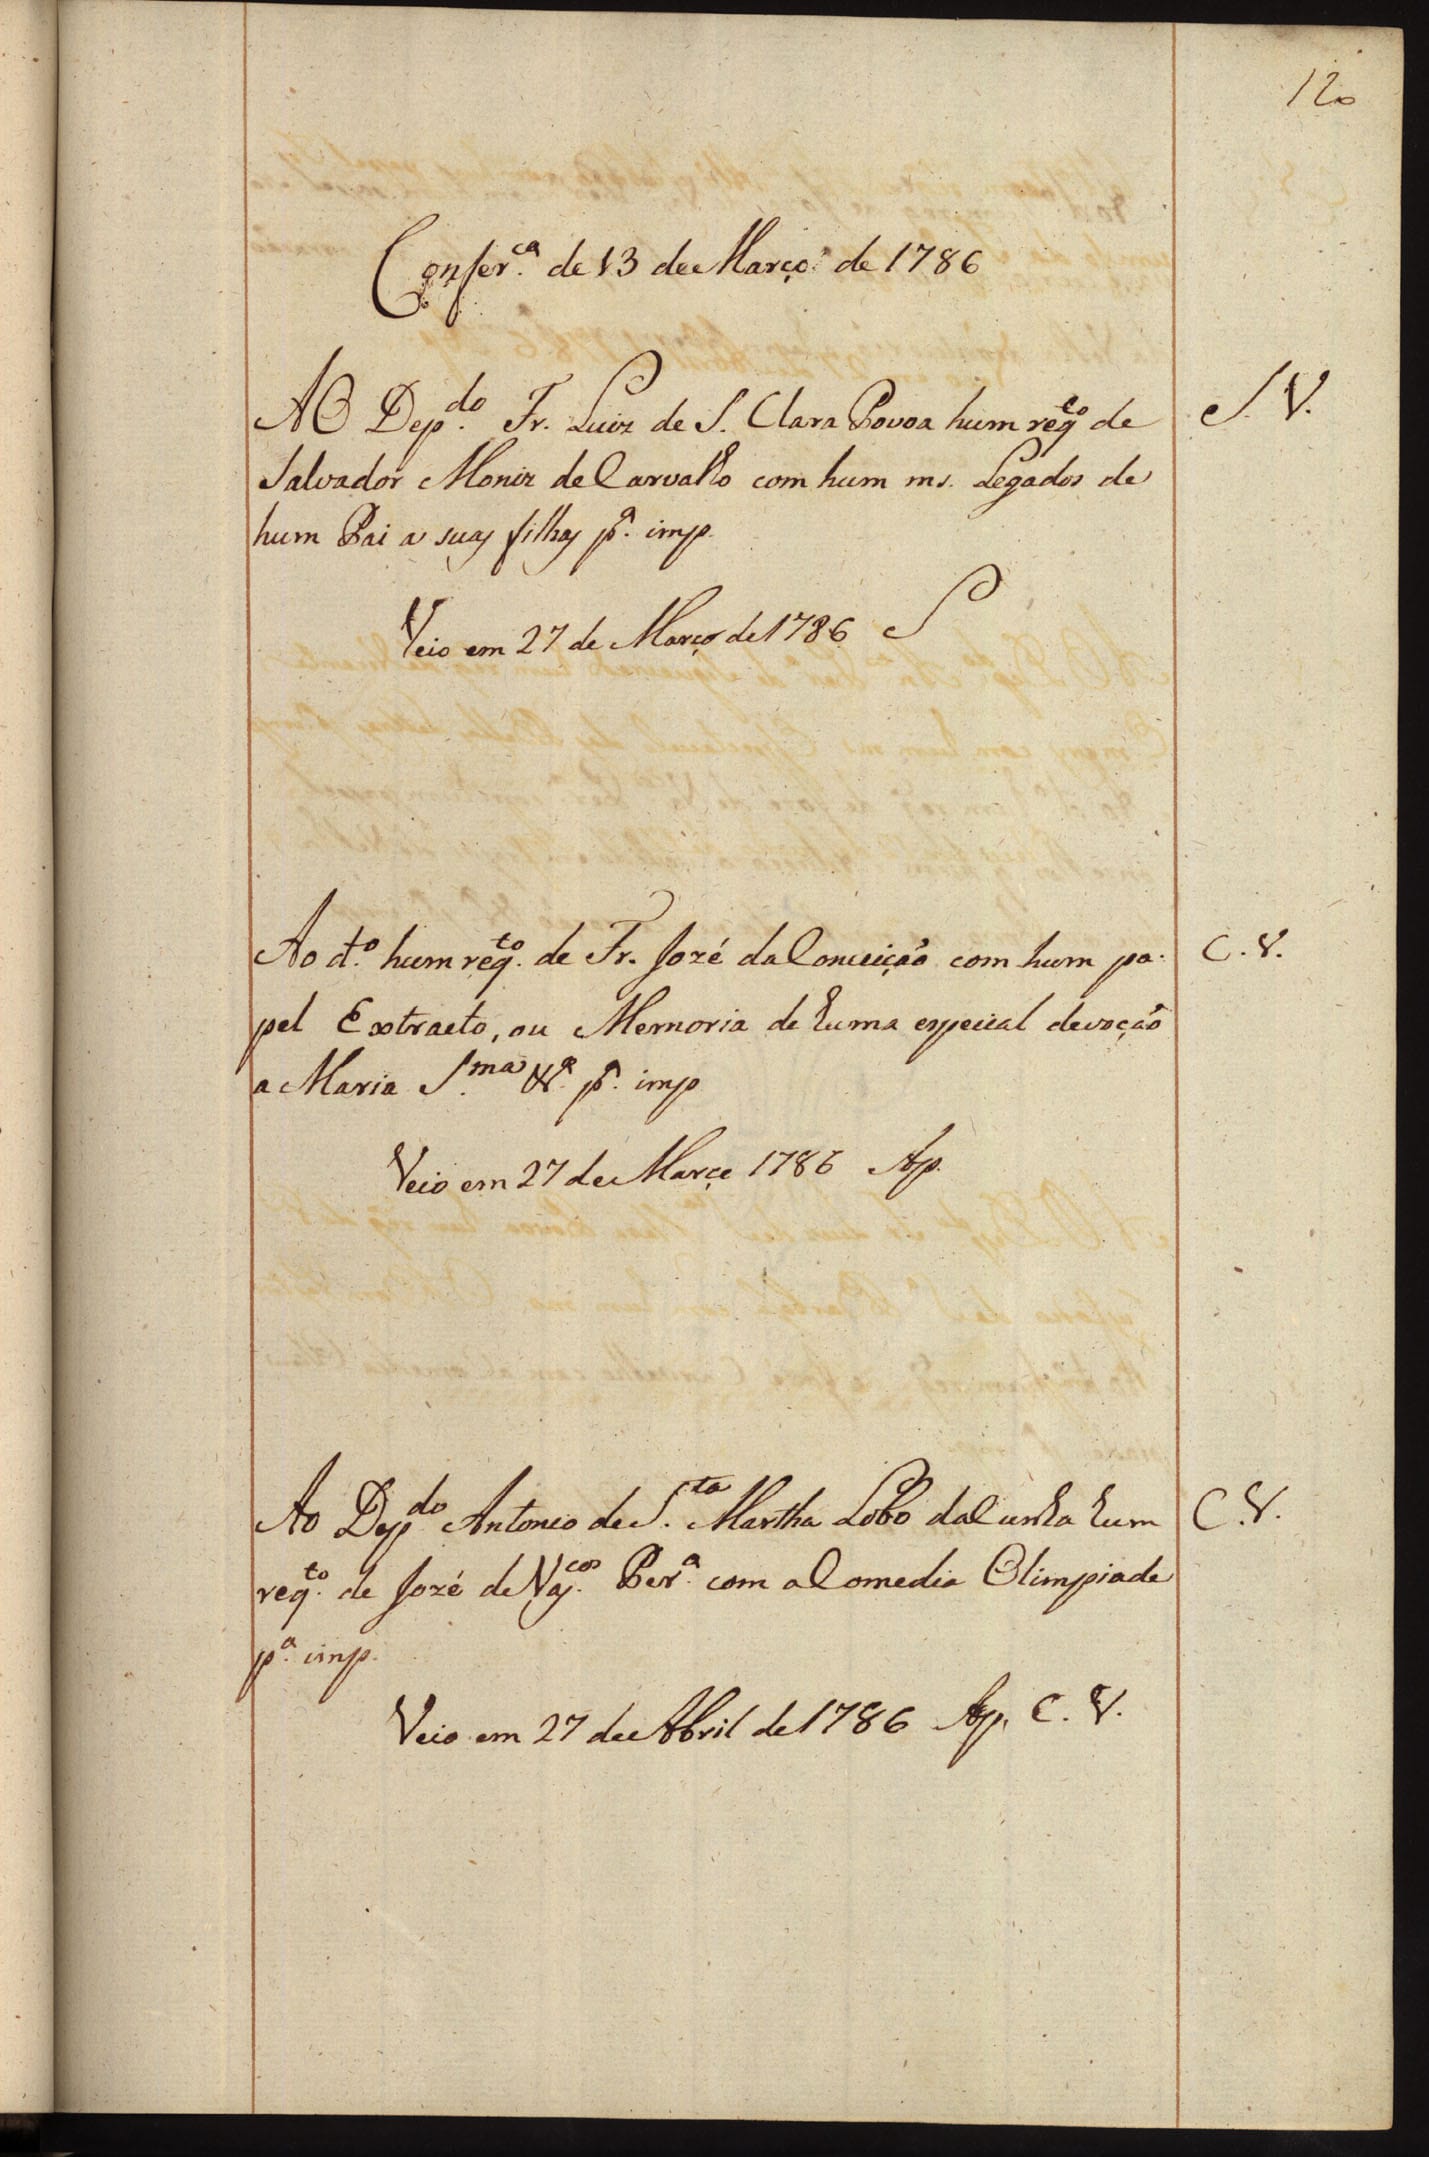 120
Confer.ca de 13 de Março de 1786
AO Dep.do Fr. Luiz de S. Clara Povoa hum reqto de
S. V.
Salvador Moniz de Carvalho com hum ms. Legados de
hum Pai a suas filhas p.a imp.
Veio em 27 de Março de 1786 S
Ao d.o hum req.to de Fr. Jozé da Conceição com hum pa-
C. V.
pel Extracto, ou Memoria de huma especial devoção
a Maria S.ma N.a p.a imp
Veio em 27 de Março 1786 Ap.
Ao Dep.do Antonio de S.ta Martha Lobo da Cunha hum
C. V.
req.to de Jozé de Vas.cos Per.a com a Comedia Olimpiade
p.a imp.
Veio em 27 de Abril de 1786 Ap. C. V.